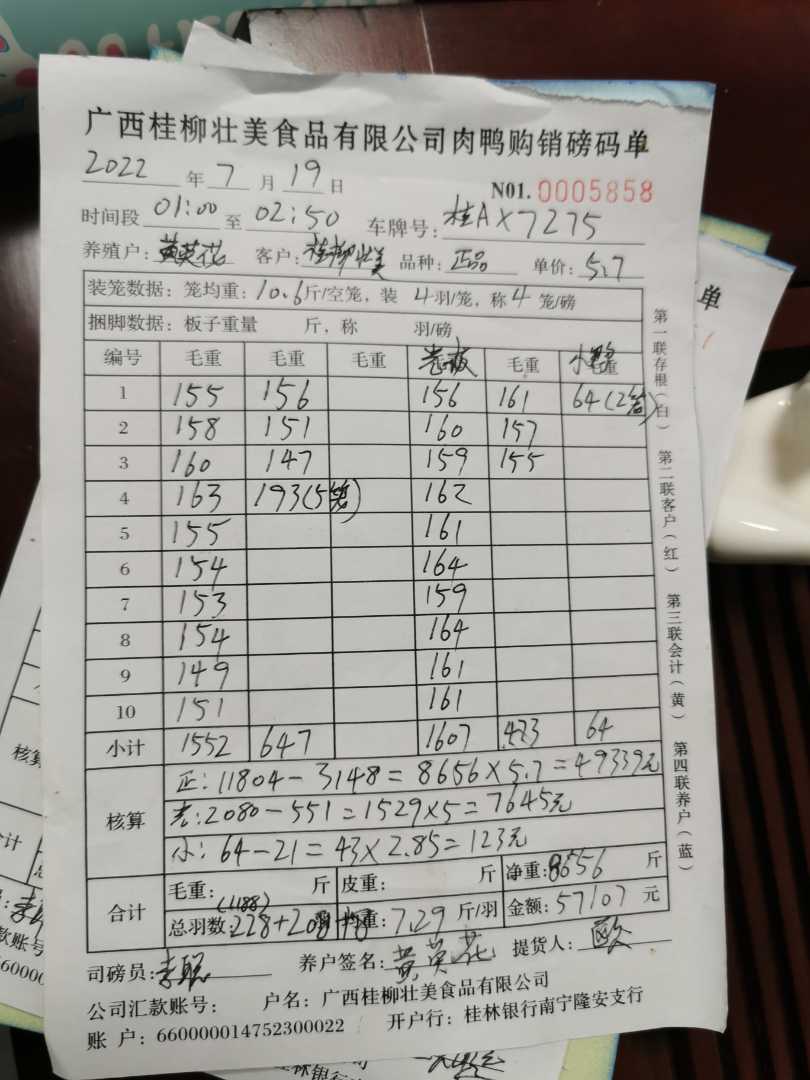 广西桂柳壮美食品有限公司肉鸭购销磅码单
2022 年 7 月 19 日 N01. 0005858
时间段 01:00 至 02:50 车牌号: 桂AX7275
养殖户: 黄英花 客户: 桂柳壮美 品种: 正品 单价: 5.7
装笼数据: 笼均重: 10.6 斤/空笼, 装 4 羽/笼, 称 4 笼/磅
捆脚数据: 板子重量 斤, 称 羽/磅
编号 毛重 毛重 毛重 毛重
1 155 156 156 161 64(2笼)
2 158 151 160 157
3 160 147 159 155
4 163 193(5笼) 162
5 155 161
6 154 164
7 153 159
8 154 164
9 149 161
10 151 161
小计 1552 647 1607 473 64
核算
正: 11804-3148=8656×5.7=49339元
老: 2080-551=1529×5=7645元
小: 64-21=43×2.85=123元
合计
毛重: 斤 皮重: 斤 净重: 8656 斤
(1188)
总羽数: 228+208+8 均重: 7.29 斤/羽 金额: 57107 元
司磅员: 养户签名: 黄英花 提货人: 欧
公司汇款账号: 户名: 广西桂柳壮美食品有限公司
账 户: 660000014752300022 开户行: 桂林银行南宁隆安支行
第一联存根(白) 第二联客户(红) 第三联会计(黄) 第四联养户(蓝)
单